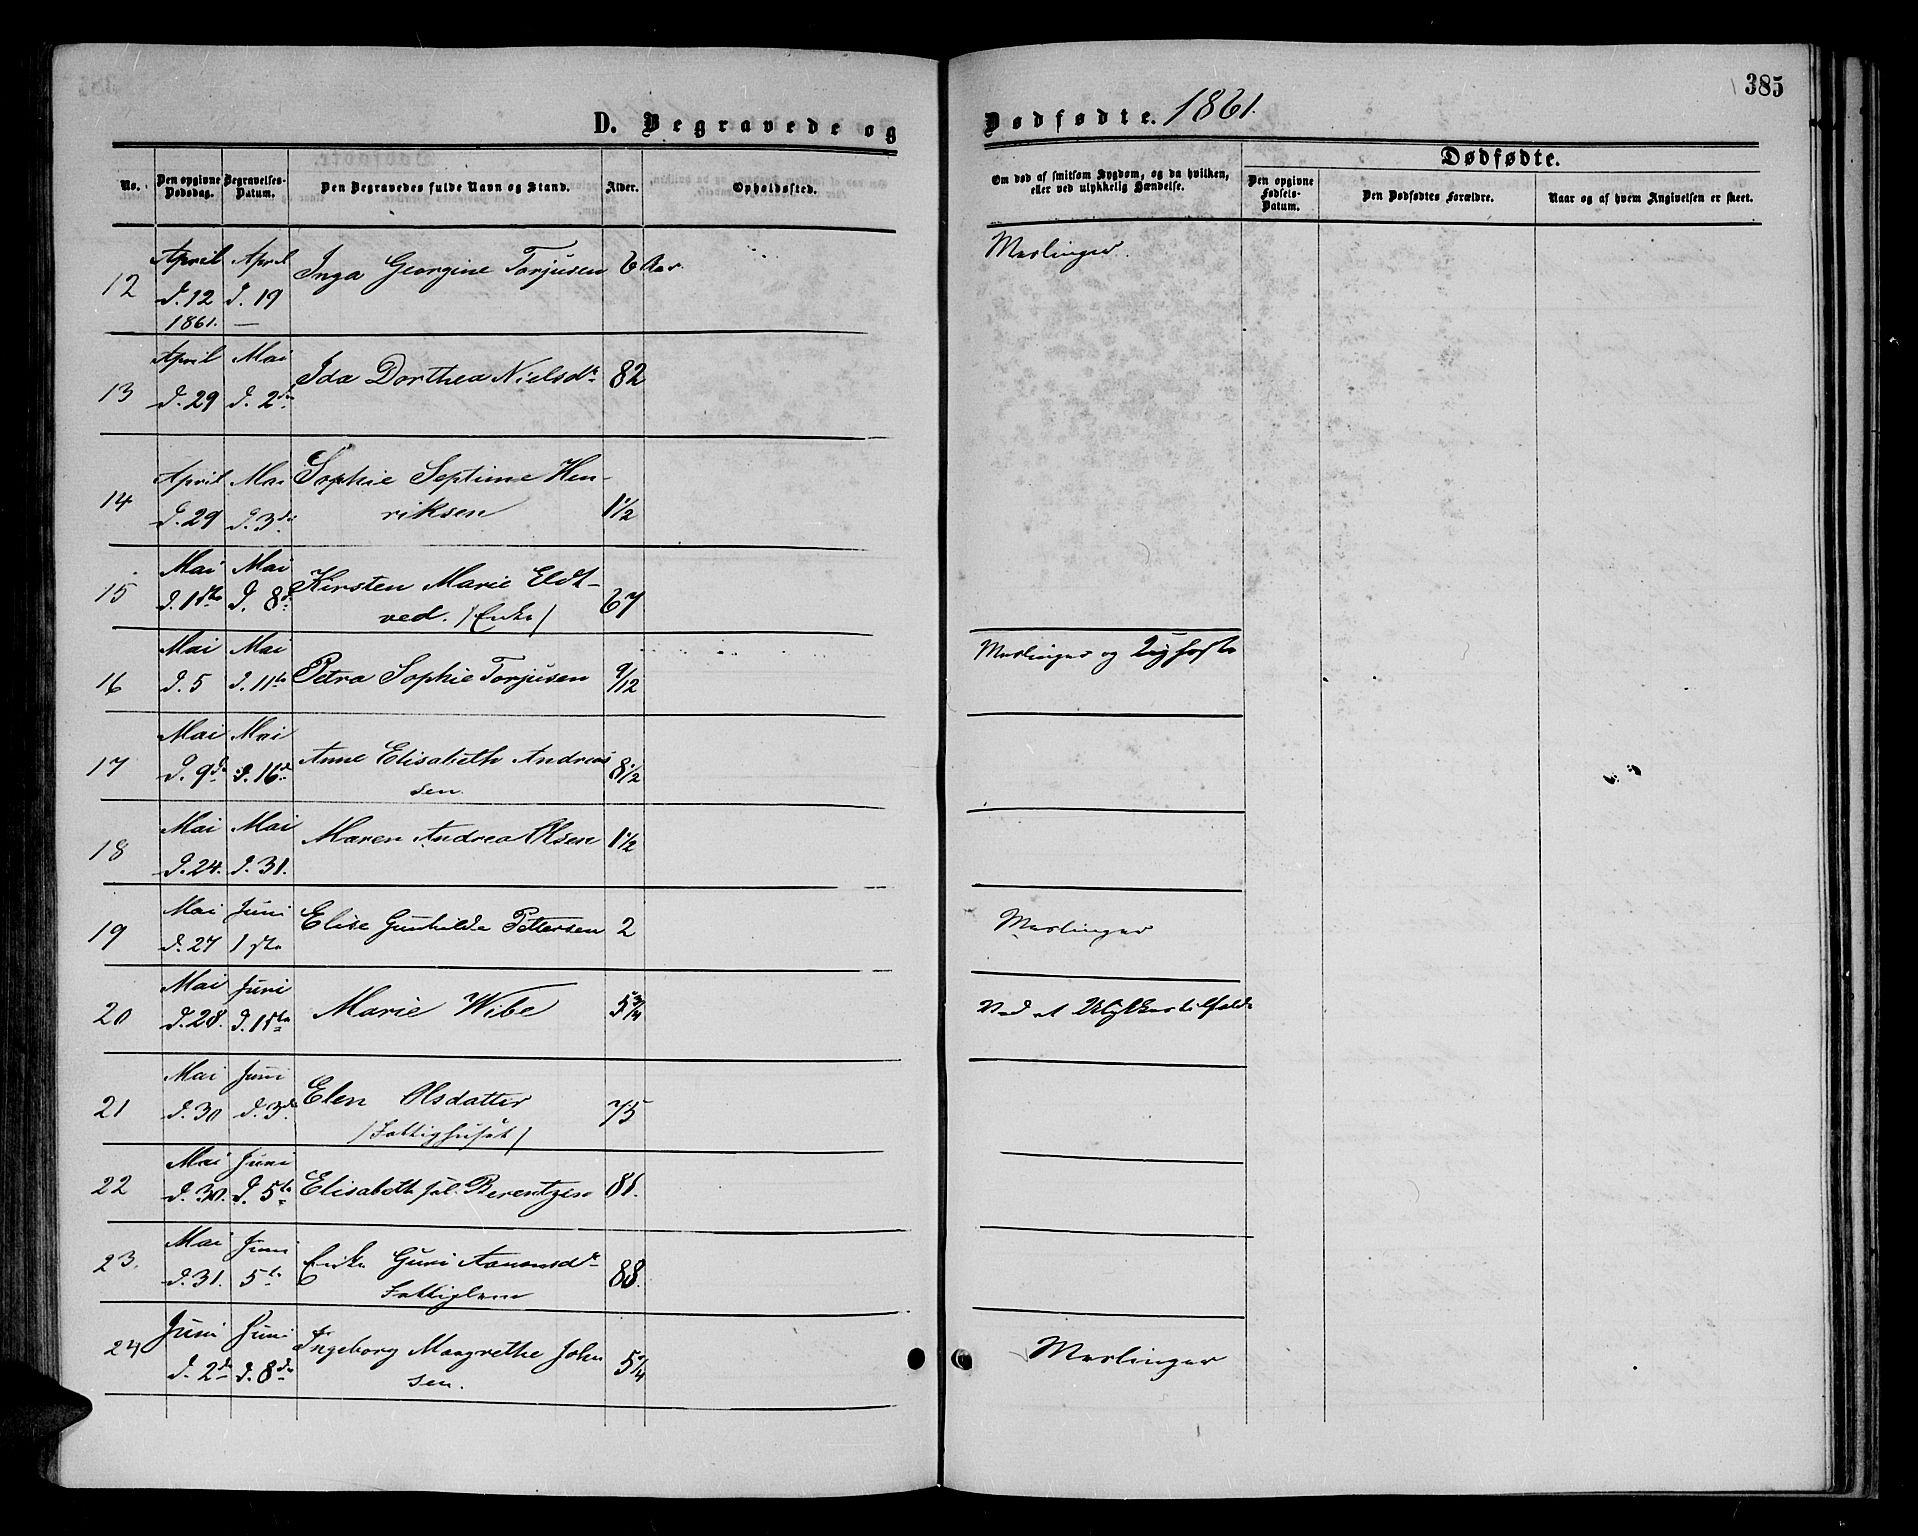 385
D. Begravede og Dødfødte. 1861.
Dødfødte.
No.
Den opgivne Dødsdag.
Begravelses-Datum.
Den Begravedes fulde Navn og Stand.
Alder.
Opholdssted.
Om død af smitsom Sygdom, og da hvilken, eller ved ulykkelig Hændelse.
Den opgivne Fødsels-Datum.
Den Dødfødtes Forældre.
Naar og af hvem Angivelsen er skeet.
12 April d. 12 1861. April d. 19 — Inga Georgine Torjusen 6 Aar Meslinger.
13 April d. 29 Mai d. 2de Ida Dorthea Nielsdr 82
14 April d. 29 Mai d. 3de Sophie Septime Hen-
riksen 1 1/2
15 Mai d. 1ste Mai d. 8de Kirsten Marie Eldt-
ved. /Enke/ 67
16 Mai d. 5 Mai d. 11te Petra Sophie Torjusen 9/12 Meslinger og
17 Mai d. 9de Mai d. 16de Anne Elisabeth Andreas
sen. 8 1/2
18 Mai d. 24. Mai d. 31. Maren Andrea Olsen 1 1/2
19 Mai d. 27 Juni 1ste Elise Gunhilde Pettersen 2 Meslinger
20 Mai d. 28. Juni d. 1ste Marie Wibe 5 3/4 Ved et Ulykkestilfælde
21 Mai d. 30 Juni d. 3de Elen Olsdatter
/Fattighuset/ 75
22 Mai d. 30. Juni d. 5te Elisabeth sal. Berentzen 81.
23. Mai d. 31. Juni 5te Enke Guri Aanonsdr
Fattiglem 88.
24 Juni d. 2de Juni d. 8de Ingeborg Maagrethe John
sen. Meslinger